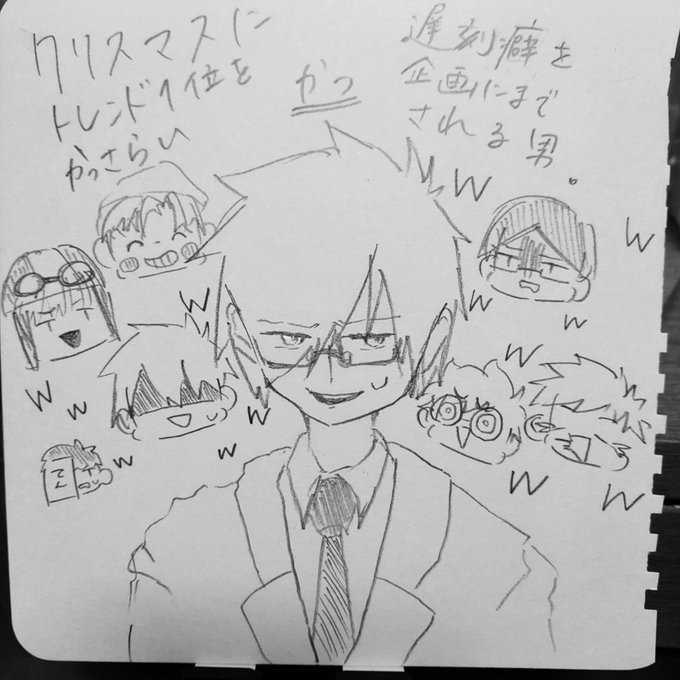 クリスマスに
トレンド1位を
かっさらい
かつ
遅刻癖を
企画にまで
される男。
W
W
W
W
W
W
W
W
W
W
W
W
W
てん